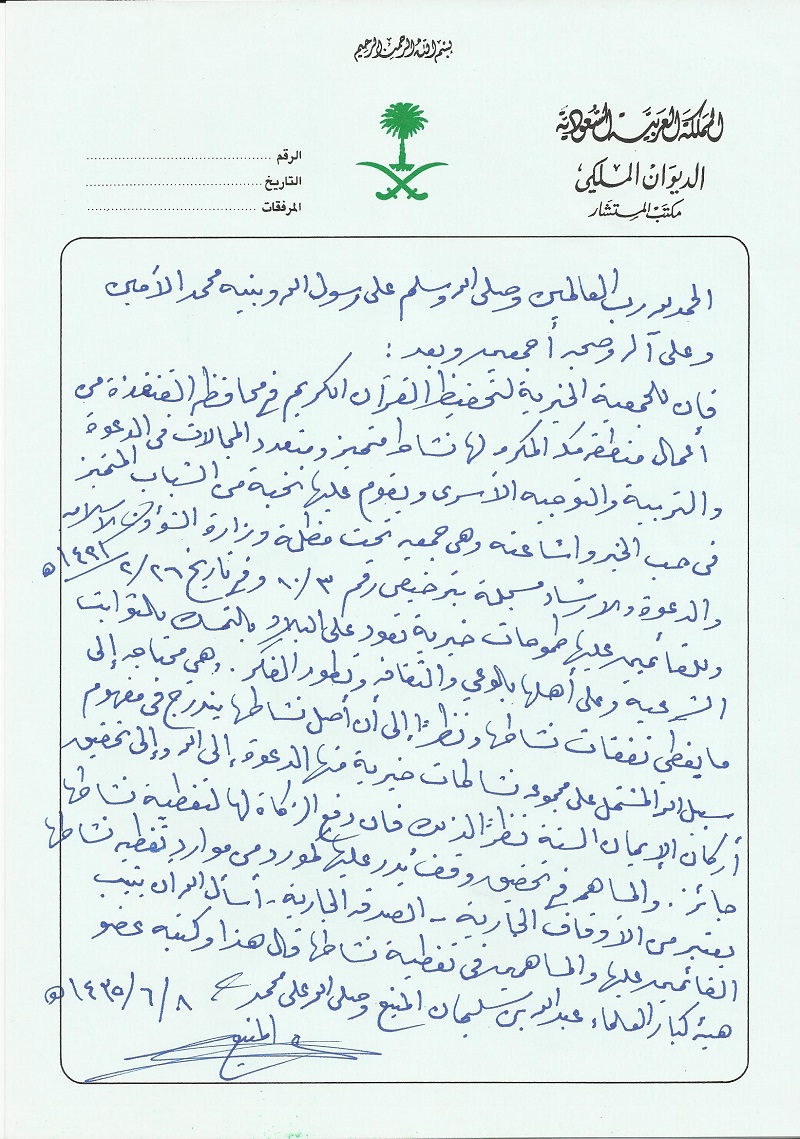 بسم الله الرحمن الرحيم
المملكة العربية السعودية
الديوان الملكي
مكتب المستشار
الرقم
التاريخ
المرفقات
الحمد لله رب العالمين وصلى الله وسلم على رسول الله ونبيه محمد الأمين
وعلى آله وصحبه أجمعين وبعد :
فإن للجمعية الخيرية لتحفيظ القرآن الكريم في محافظة القنفذة من
أعمال منطقة مكة المكرمة لها نشاط متميز ومتعدد المجالات في الدعوة
والتربية والتوجيه الأسري ويقوم عليها نخبة من الشباب المتميز
في حب الخير واشاعته وهي جمعيه تحت مظلة وزارة الشؤون الاسلاميه
والدعوة والارشاد مسجلة بترخيص رقم ١٠/٣ وفي تاريخ ٢/٢٦/١٤٢١ھ
وللقائمين عليها طموحات خيرية تعود على البلاد بالتمسك بالثوابت
الشرعية وعلى أهلها بالوعي والثقافة وتطور الفكر . وهي محتاجه إلى
ما يغطي نفقات نشاطها ونظراً إلى أن أصل نشاطها يندرج في مفهوم
سبيل الله المشتمل على مجموعة نشاطات خيرية منها الدعوة إلى الله وإلى تحقيق
أركان الإيمان الستة نظراً لذلك فإن دفع الزكاة لها لتغطية نشاطها
جائز . والمساهم في تحقيق وقف يُدر عليها لمورد من موارد تغطية نشاطها
يعتبر من الأوقاف الجارية - الصدقة الجارية - أسأل الله أن يثيب
القائمين عليها والمساهمين في تغطية نشاطها قال هذا وكتبه عضو
هيئة كبار العلماء عبدالله بن سليمان المنيع وصلى الله على محمد ١٤٣٥/٦/٨ھ
المنيع